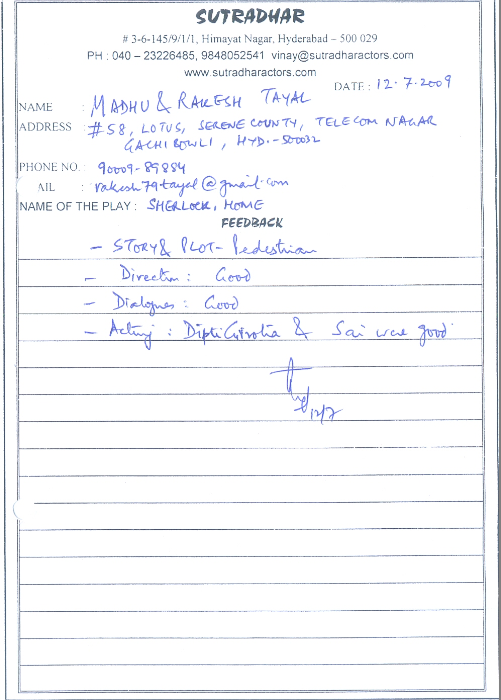 SUTRADHAR
# 3-6-145/9/1/1, Himayat Nagar, Hyderabad – 500 029
PH : 040 – 23226485, 9848052541 vinay@sutradharactors.com
www.sutradharactors.com
DATE : 12.7.2009
NAME : MADHU & RAKESH TAYAL
ADDRESS : #58, LOTUS, SERENE COUNTY, TELECOM NAGAR
GACHIBOWLI, HYD.-500032
PHONE NO. : 90009-89884
AIL : rakesh79tayal@gmail.com
NAME OF THE PLAY : SHERLOCK, HOME
FEEDBACK
- STORY & PLOT - Pedestrian
- Direction : Good
- Dialogues : Good
- Acting : Dipti & Sai were good
12/7